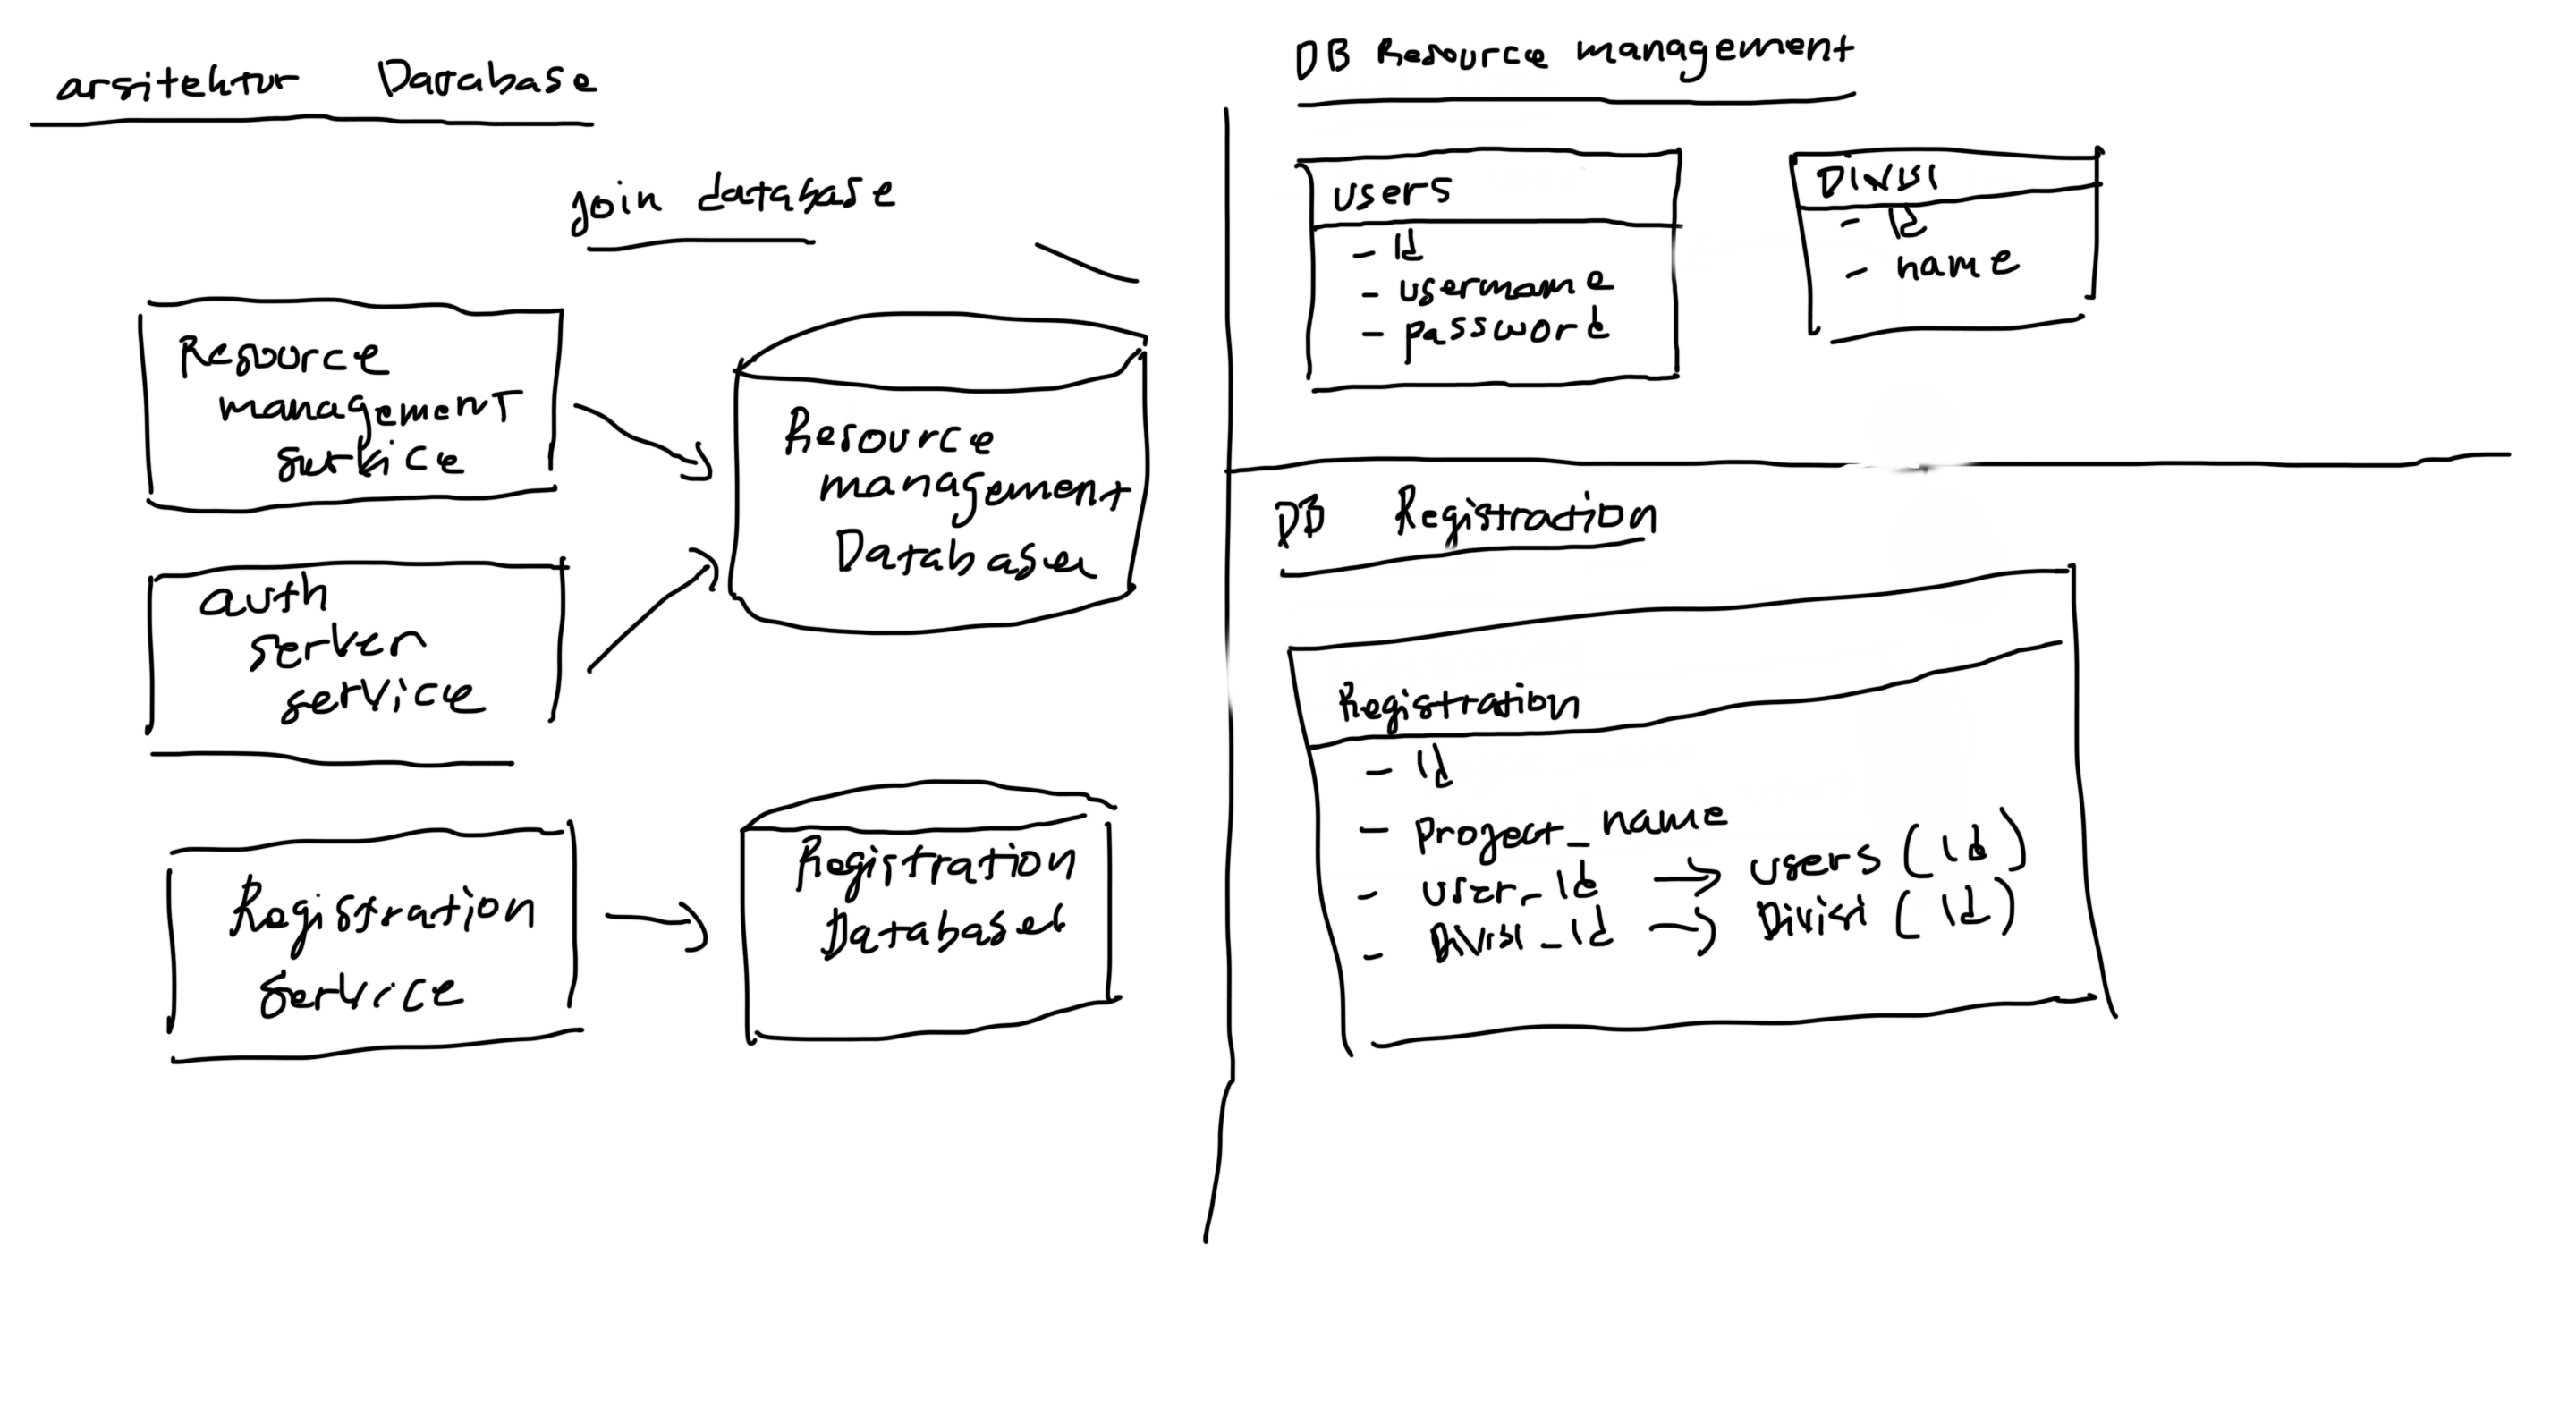 arsitektur Database
join database
Resource
management
service
auth
server
service
Registration
service
Resource
management
Database
Registration
Database
DB Resource management
users
- id
- username
- password
Divisi
- id
- name
DB Registration
Registration
- id
- project_name
- user_id → users (id)
- Divisi_id → Divisi (id)